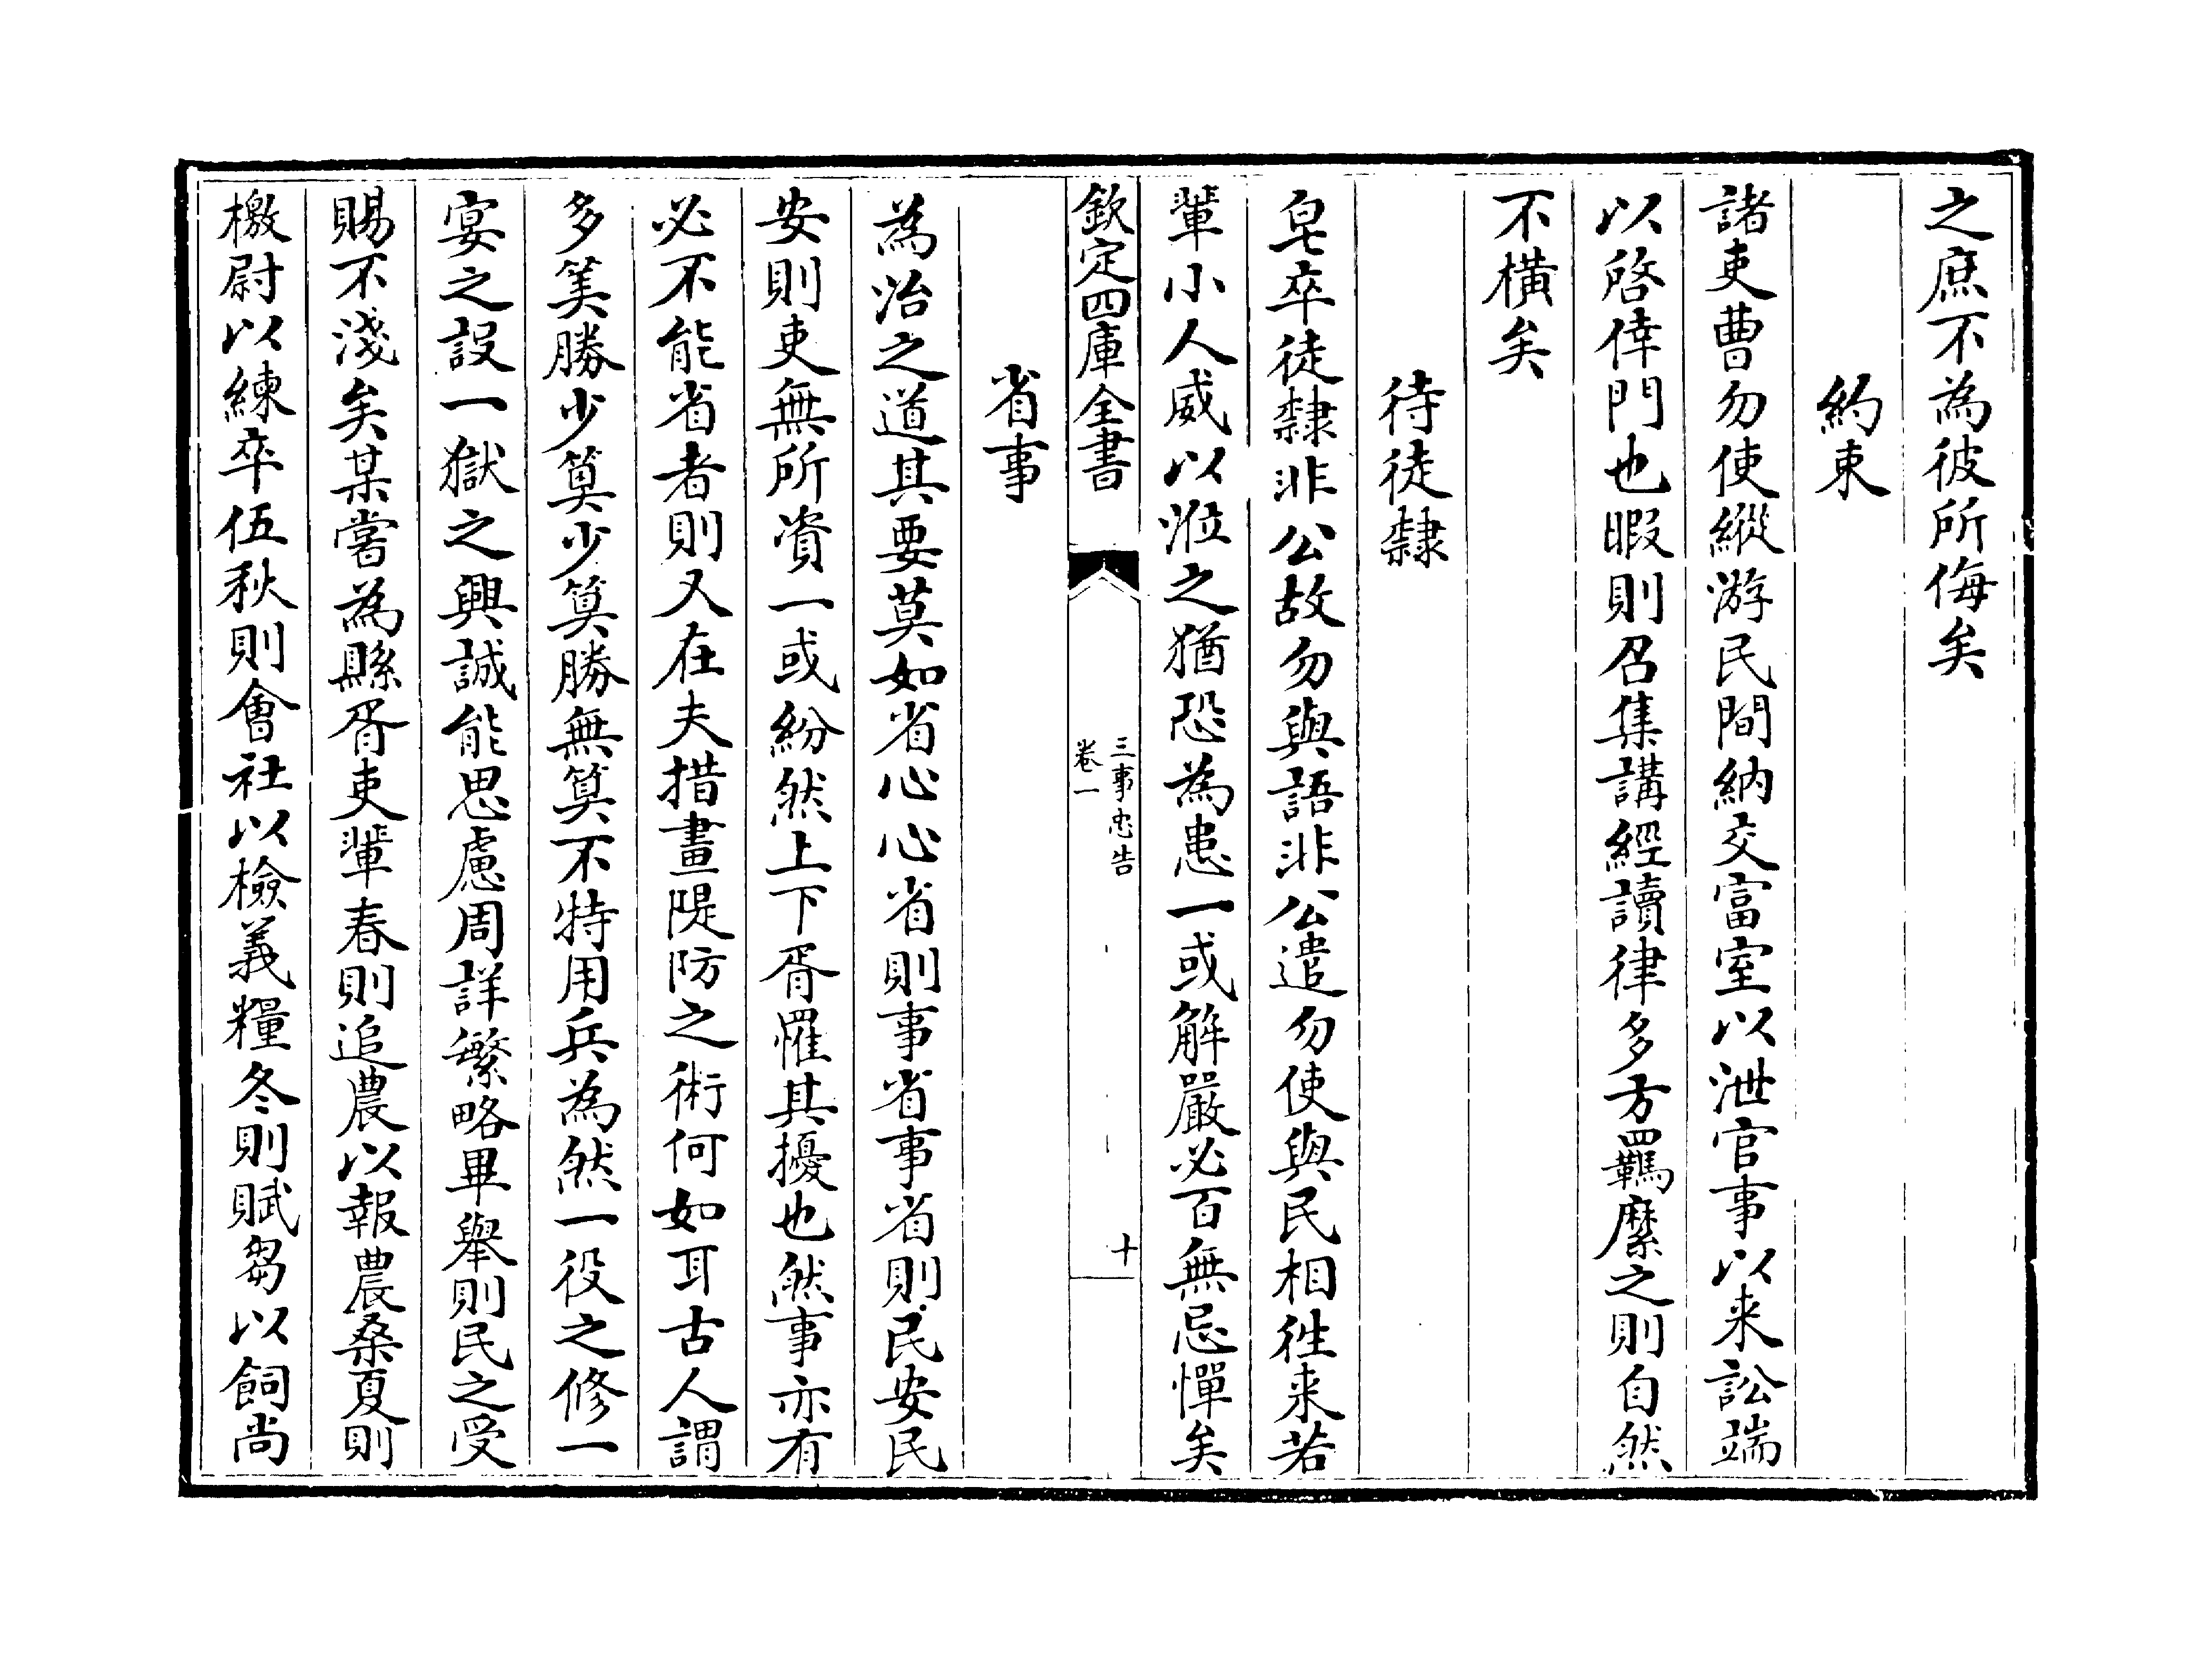 之庶不為彼所侮矣
約束
諸吏曹勿使縱游民間納交富室以泄官事以来訟端
以啓倖門也暇則召集講經讀律多方羈縻之則自然
不橫矣
待徒隸
皂卒徒隸非公故勿與語非公遣勿使與民相徃来若
輩小人威以涖之猶恐為患一或解嚴必百無忌憚矣
欽定四庫全書
三事忠告
卷一
十
省事
為治之道其要莫如省心心省則事省事省則民安民
安則吏無所資一或紛然上下胥罹其擾也然事亦有
必不能省者則又在夫措畫隄防之術何如耳古人謂
多筭勝少少算少算勝無算不特用兵為然一役之修一
宴之設一獄之興誠能思慮周詳繁略畢舉則民之受
賜不淺矣某嘗為縣胥吏輩春則追農以報農桑夏則
檄尉以練卒伍秋則會社以檢義糧冬則賦芻以飼尚